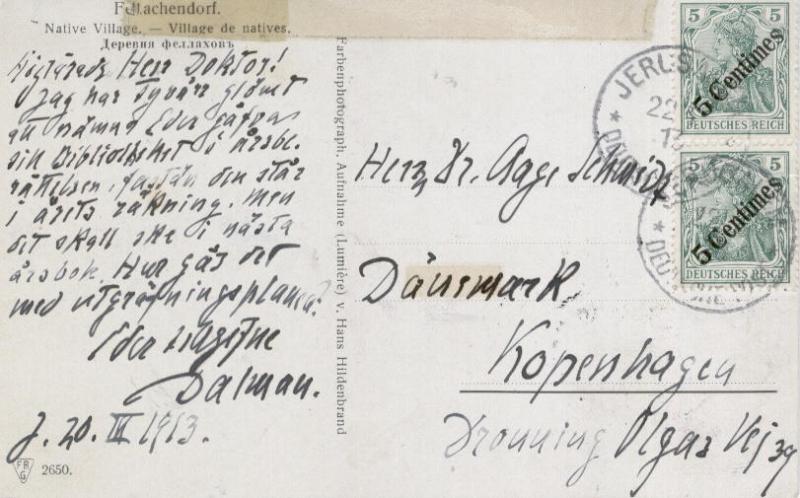 Fellachendorf.
Native Village. — Village de natives.
Деревня феллаховъ
Högtärade Herr Doktor!
Jag har tyvärr glömt
att nämna Eder gåfva
till Biblioteket i årsbe-
rättelsen, fastän den står
i årets räkning. Men
det skall ske i nästa
årsbok. Hur går det
med utgräfningsplanen?
Eder tillgifne
Dalman.
J. 20. IV 1913.
FR G
2650.
Farbenphotograph. Aufnahme (Lumière) v. Hans Hildenbrand
Herrn Dr. Aage Schmidt
Dänemark
Kopenhagen
Dronning Olgas Vej 39
5 5
5 Centimes
DEUTSCHES REICH
5 5
5 Centimes
DEUTSCHES REICH
JERUS
22
13
DEUTSCHE